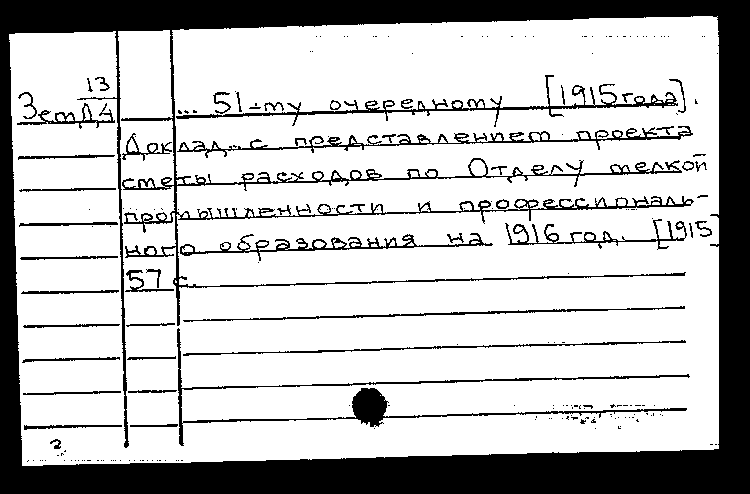 13
Зем Д4
... 51-му очередному [1915 года].
Доклад.. с представлением проекта
сметы расходов по Отделу мелкой
промышленности и профессиональ-
ного образования на 1916 год. [1915]
57 с.
2